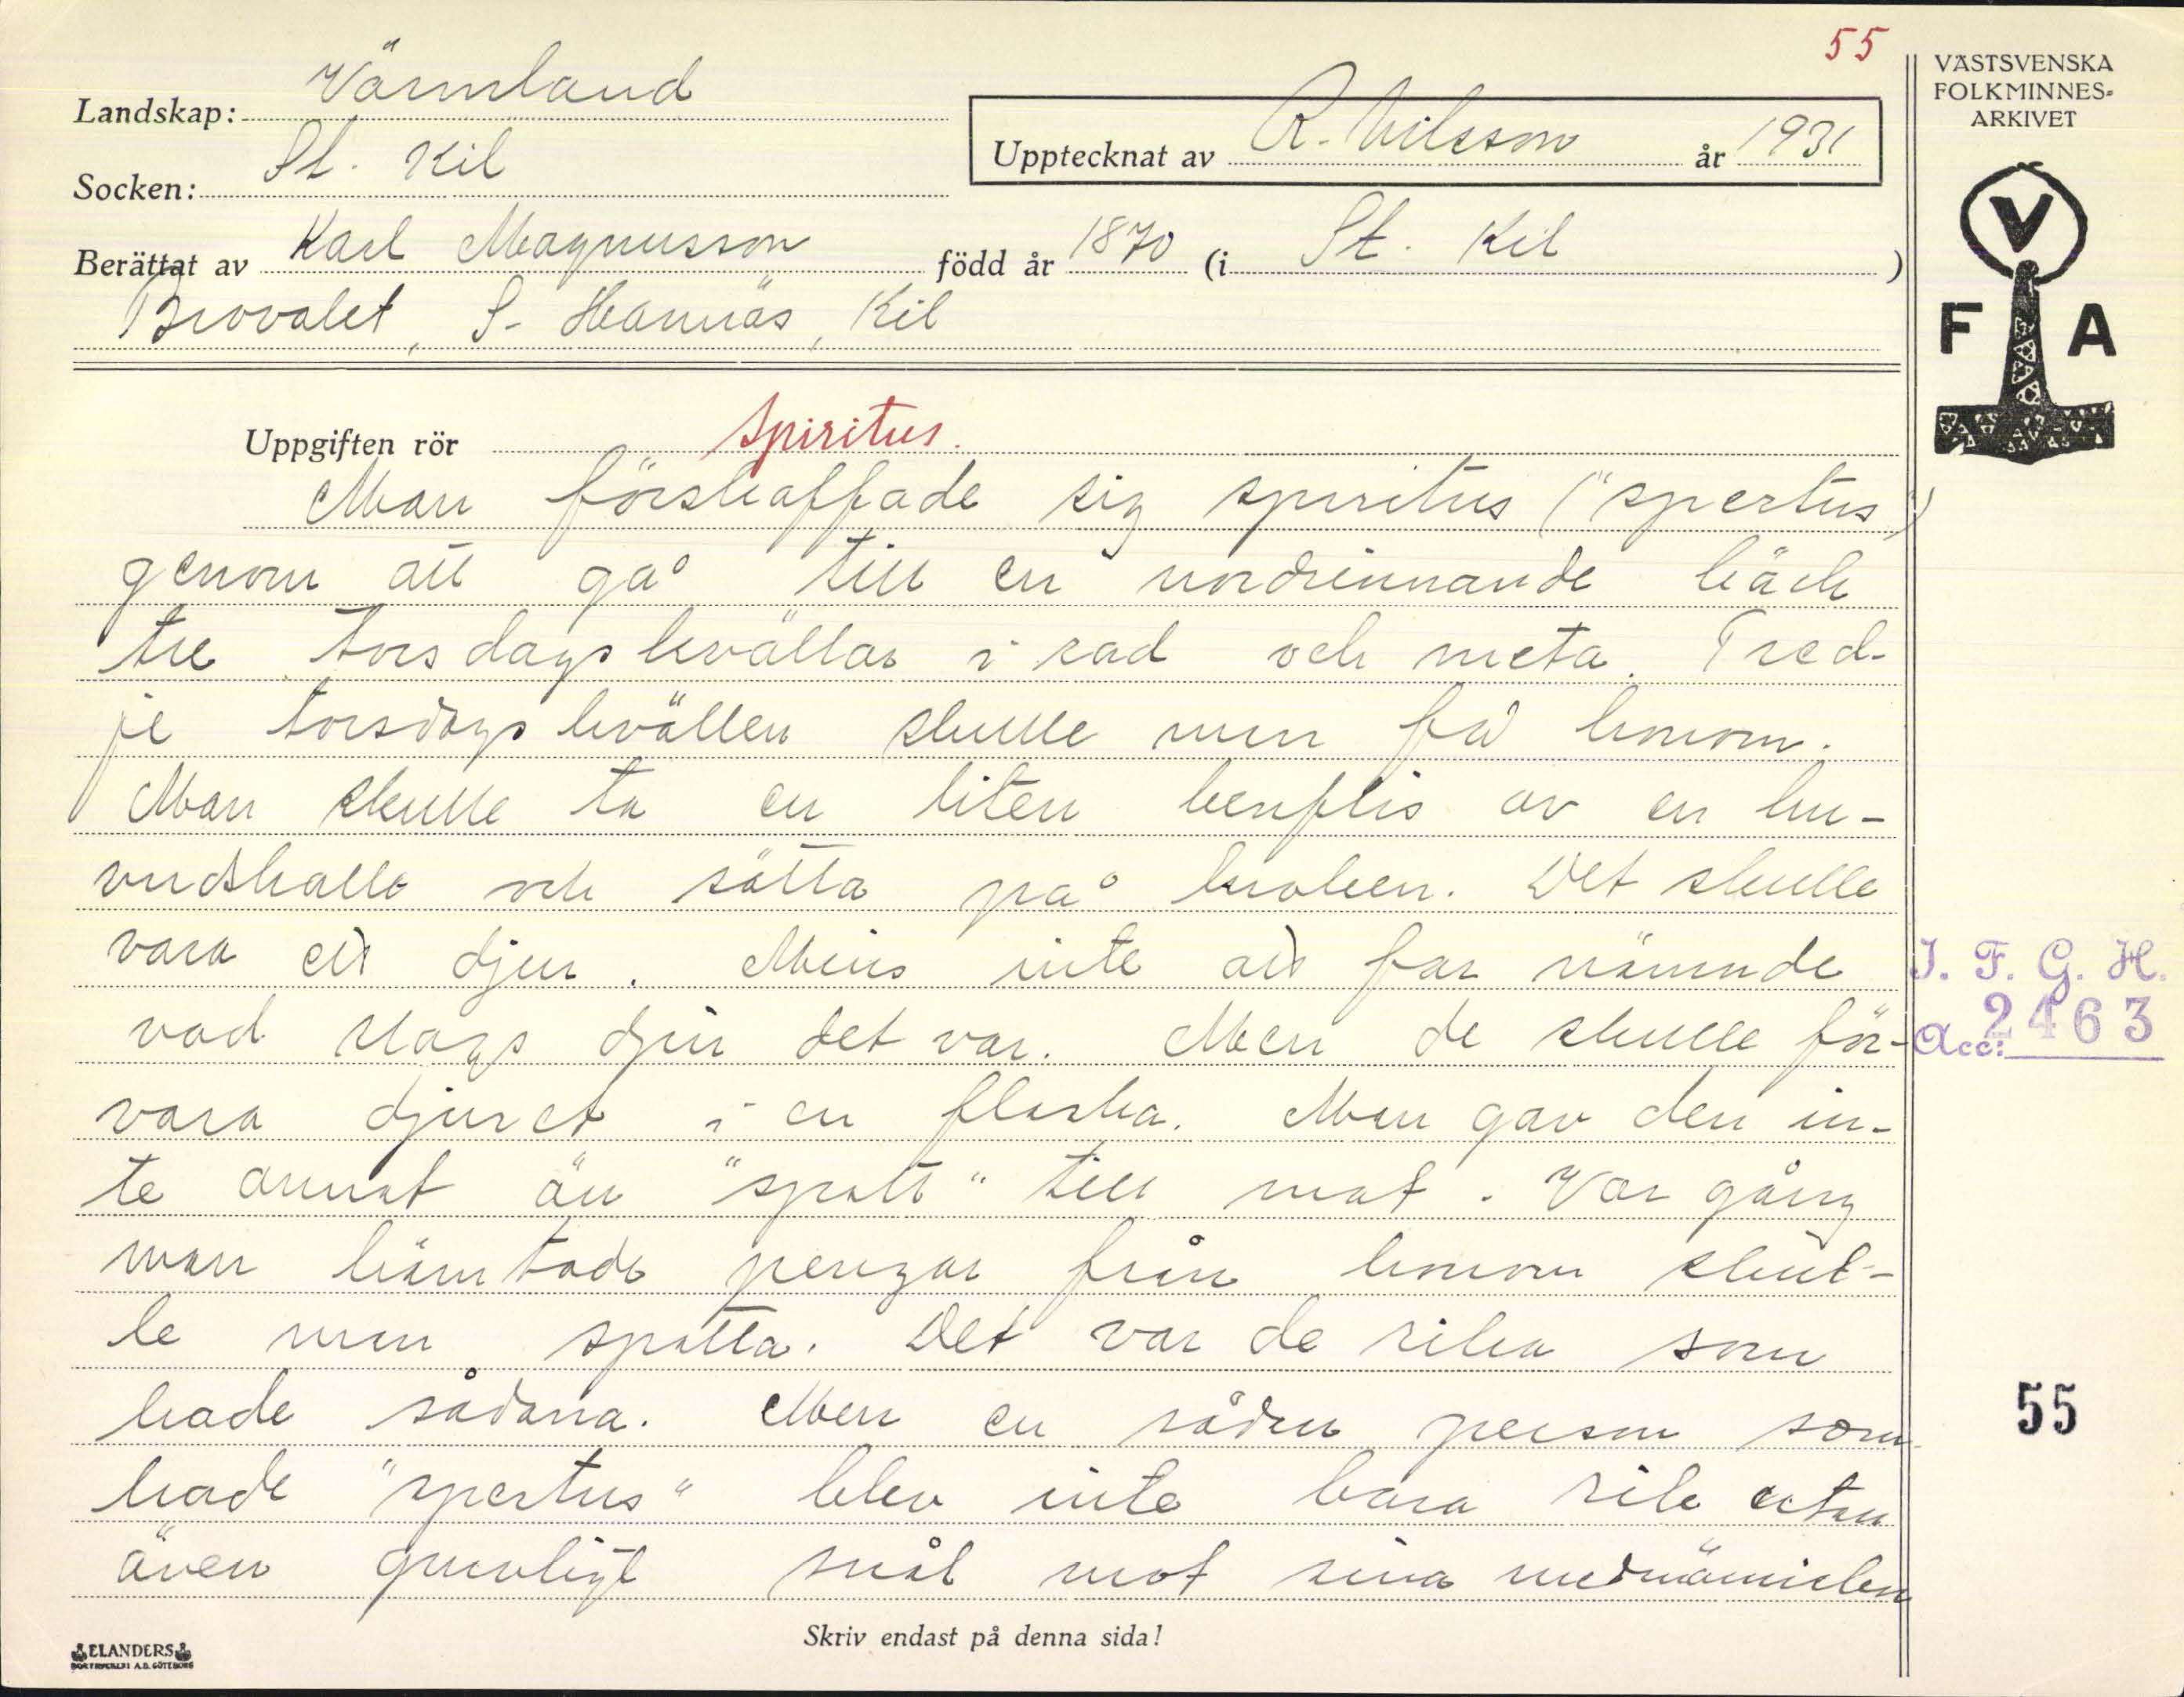 55
Landskap: Värmland
Socken: St. Kil
Upptecknat av R. Nilsson år 1931
Berättat av Karl Magnusson född år 1870 (i St. Kil )
Brovalet, S. Hannäs, Kil
Uppgiften rör spiritus.
Man förskaffade sig spiritus ("spertus")
genom att gå till en nordrinnande bäck
tre torsdagskvällar i rad och meta. Tred-
je torsdagskvällen skulle man få honom.
Man skulle ta en liten benflis av en hu-
vudskalle och sätta på kroken. Det skulle
vara ett djur. Mins inte att far nämnde
vad slags djur det var. Men de skulle för-
vara djuret i en flaska. Man gav den in-
te annat än "spott" till mat. Var gång
man hämtade pengar från honom skul-
le man spotta. Det var de rika som
hade sådana. Men en sådan person som
hade "spertus" blev inte bara rik utan
även gruvligt snål mot sina medmänisker
Skriv endast på denna sida!
ELANDERS
BOKTRYCKERI A.B. GÖTEBORG
VÄSTSVENSKA
FOLKMINNES-
ARKIVET
V
F A
I. F. G. H.
Acc: 2463
55